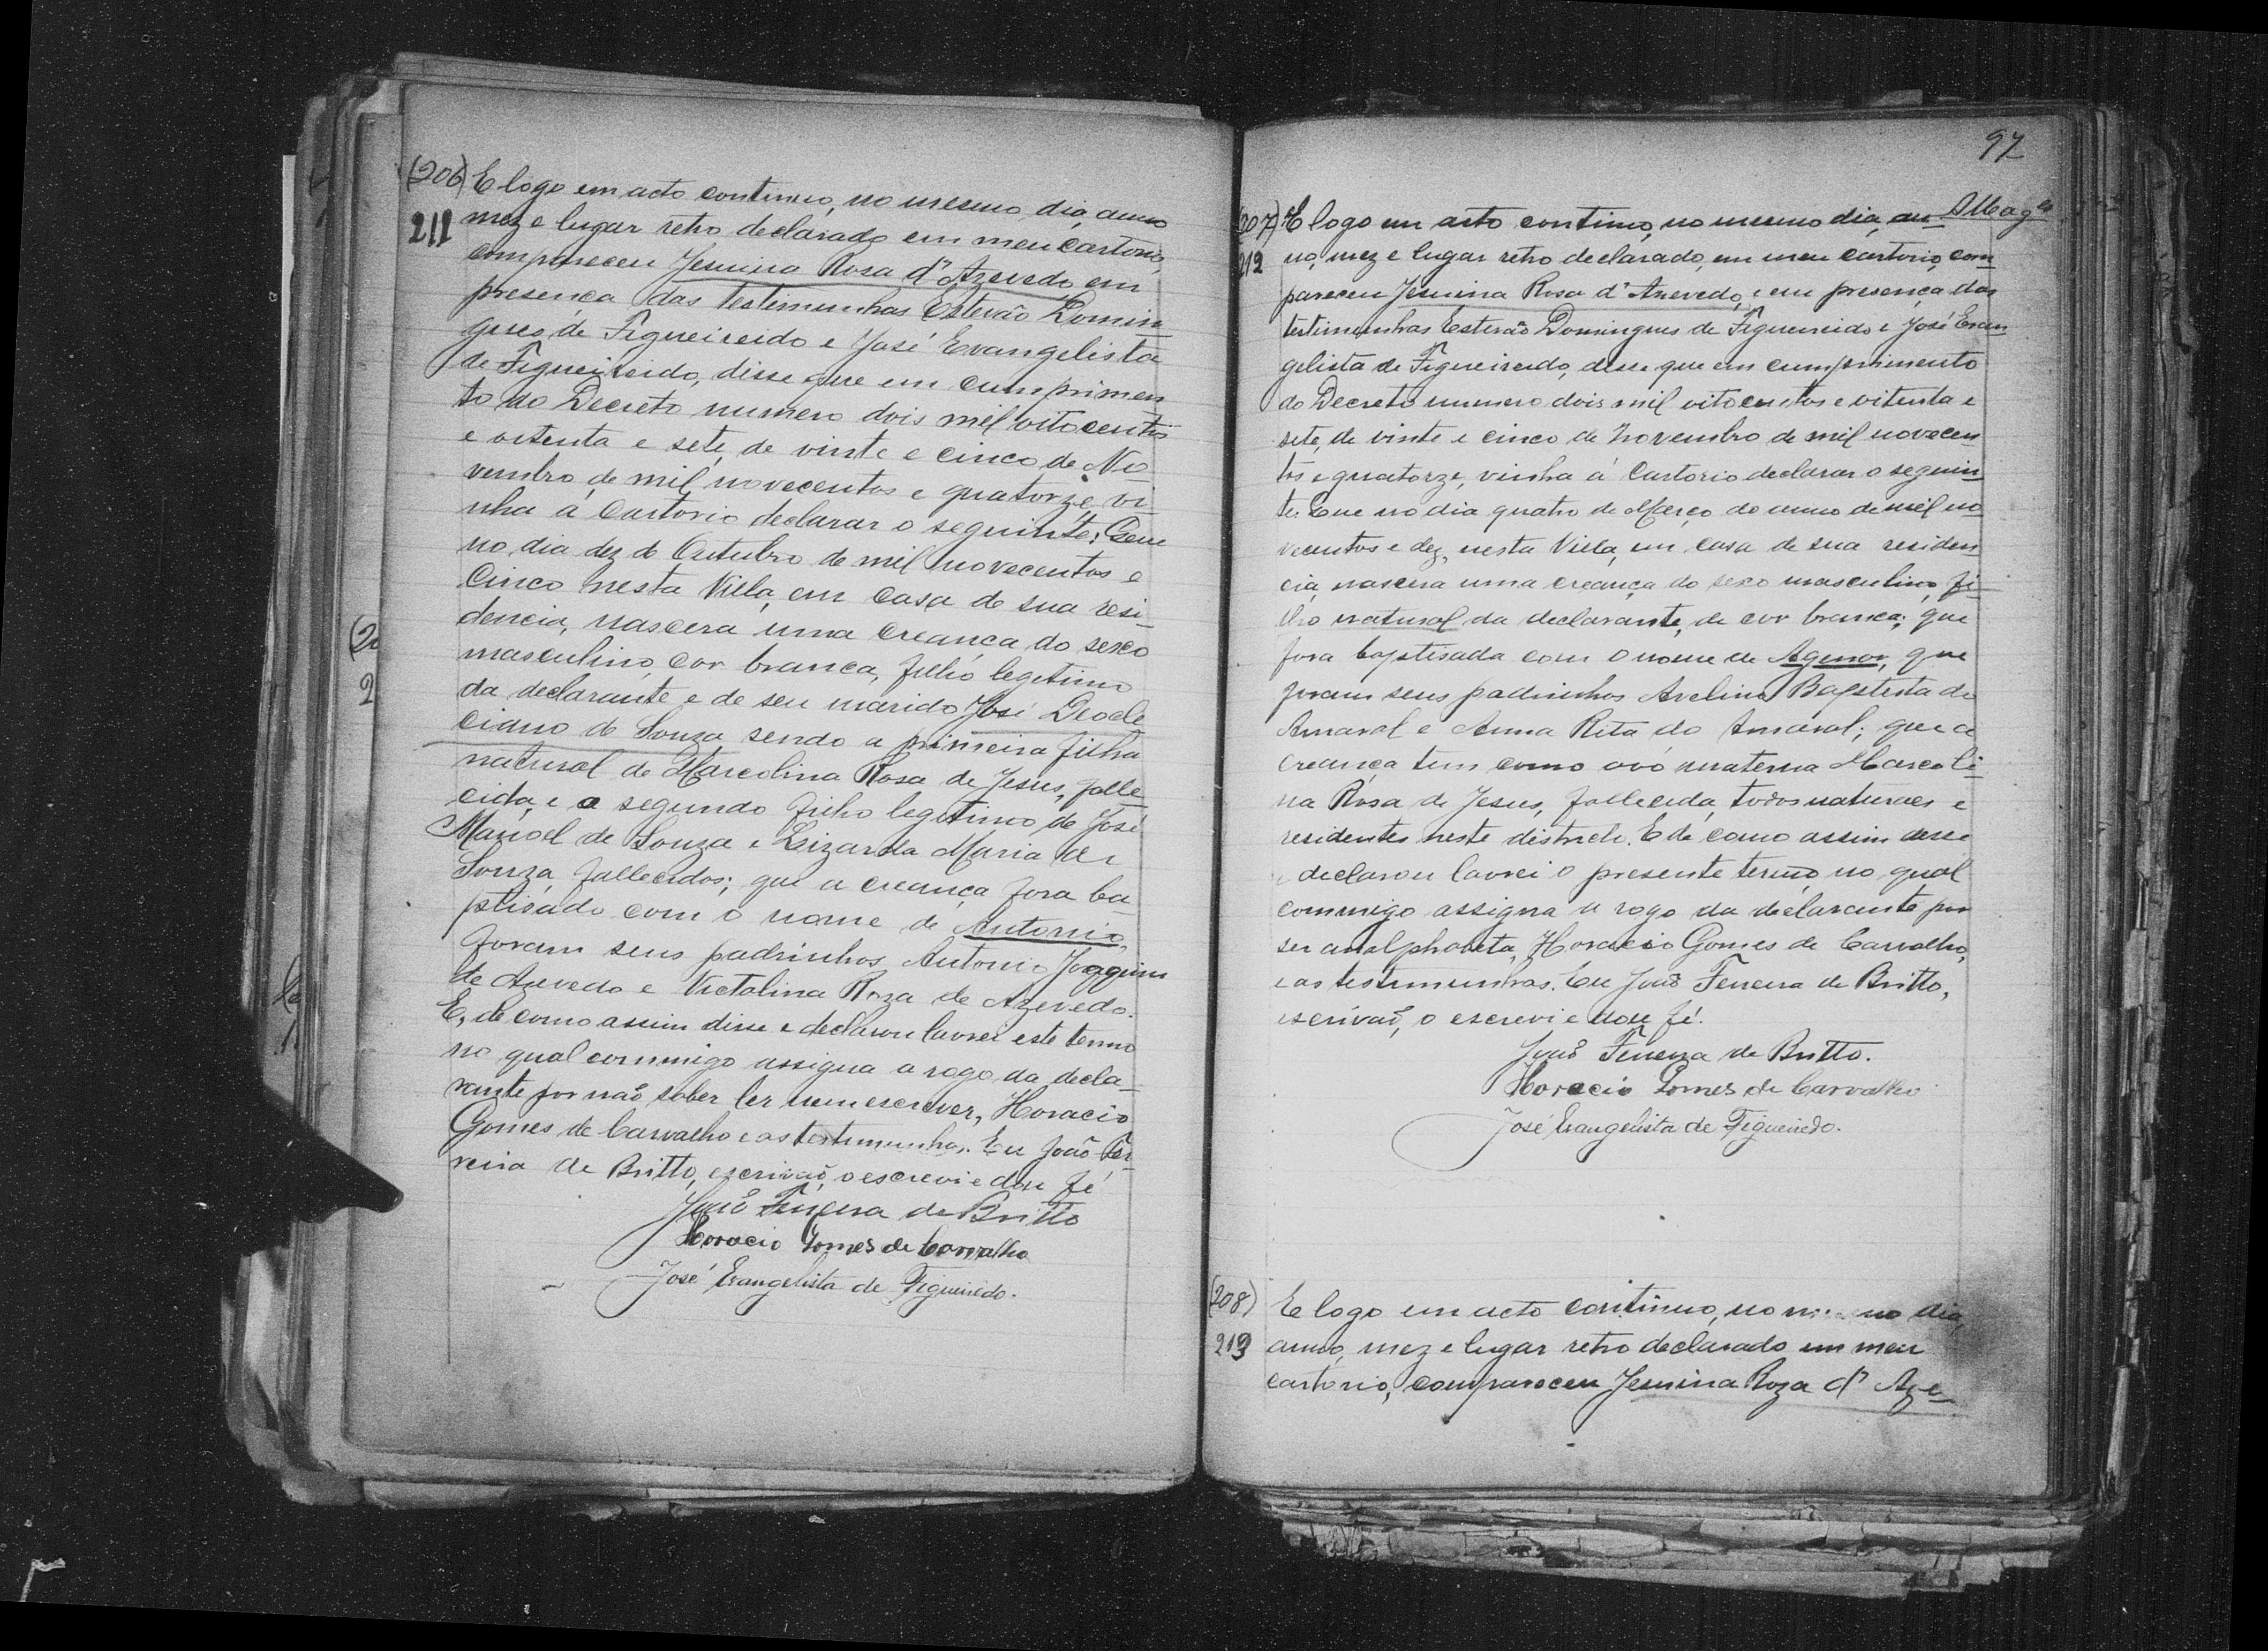 (206) E logo em acto continuo, no mesmo dia, anno
211 mez e lugar retro declarado em meu cartorio,
compareceu Jesuina Rosa d'Azevedo em
presença das testemunhas Estevão Domin
gues de Figueireido e José Evangelista
de Figueireido, disse que em cumprimen
to do Decreto numero dois mil oitocentos
e oitenta e sete, de vinte e cinco de No
vembro de mil novecentos e quatorze, vi
nha á Cartorio declarar o seguinte: Que
no dia dez de Outubro de mil novecentos e
Cinco nesta Villa, em casa de sua resi
dencia, nascera uma creança do sexo
masculino, cor branca, filho legitimo
da declarante e de seu marido José Deocle
ciano de Souza sendo a primeira filha
natural de Marcolina Rosa de Jesus, falle
cida, e o segundo filho legitimo de José
Manoel de Souza e Lizarda Maria de
Souza, fallecidos; que a creança fora ba
ptisado com o nome de Antonio,
foram seus padrinhos Antonio Joaquim
de Azevedo e Victalina Roza de Azevedo.
E, de como assim disse e declarou lavrei este termo
no qual commigo assigna a rogo da decla-
rante por não saber ler nem escrever, Horacio
Gomes de Carvalho e as testemunhas. Eu João Fer
reira de Britto, escrivão, o escrevi e dou fé
João Ferreira de Britto
Horacio Gomes de Carvalho
José Evangelista de Figueiredo.
97
(207) E logo em acto continuo, no mesmo dia, an
212 no, mez e lugar retro declarado, em meu cartorio, com
pareceu Jesuina Rosa d'Azevedo, e em presença das
testimunhas Estevão Domingues de Figueireido e José Evan
gelista de Figueireido, disse que em cumprimento
do Decreto numero dois mil oitocentos e oitenta e
sete, de vinte e cinco de Novembro de mil novecen
tos e quatorze, vinha á Cartorio declarar o seguin
te: Que no dia quatro de Março do anno de mil no
vecentos e dez, nesta Villa, em casa de sua residen
cia, nascera uma creança do sexo masculino, fi
lho natural da declarante, de cor branca; que
fora baptisada com o nome de Agenor, que
foram seus padrinhos Avelino Baptista do
Amaral e Anna Rita do Amaral; que a
creança tem como avó materna Marcoli
na Rosa de Jesus, fallecida, todos naturaes e
residentes neste districto. E de como assim disse
e declarou lavrei o presente termo no qual
commigo assigna a rogo da declarante por
ser analphabeta, Horacio Gomes de Carvalho,
e as testemunhas. Eu João Ferreira de Britto,
escrivão, o escrevi e dou fé.
João Ferreira de Britto.
Horacio Gomes de Carvalho
José Evangelista de Figueiredo.
(208) E logo em acto continuo, no mesmo dia,
213 anno, mez e lugar retro declarado em meu
cartorio, compareceu Jesuina Roza d' Aze